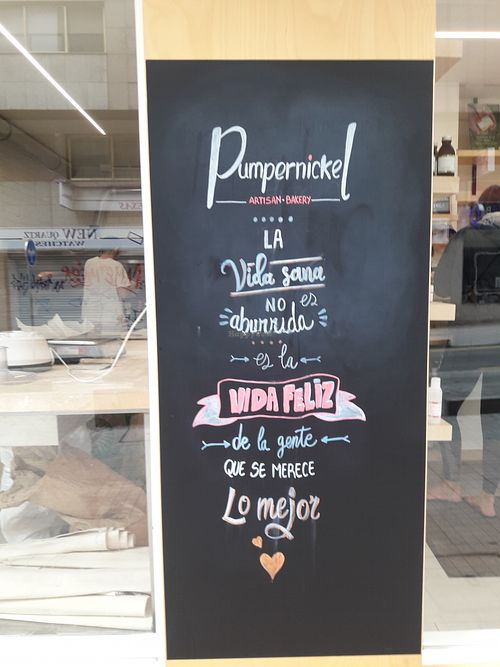 Pumpernickel
ARTISAN • BAKERY
LA
Vida sana
NO es
aburrida
es la
VIDA FELIZ
de la gente
QUE SE MERECE
Lo mejor
NEW QUARTZ
WATCHES